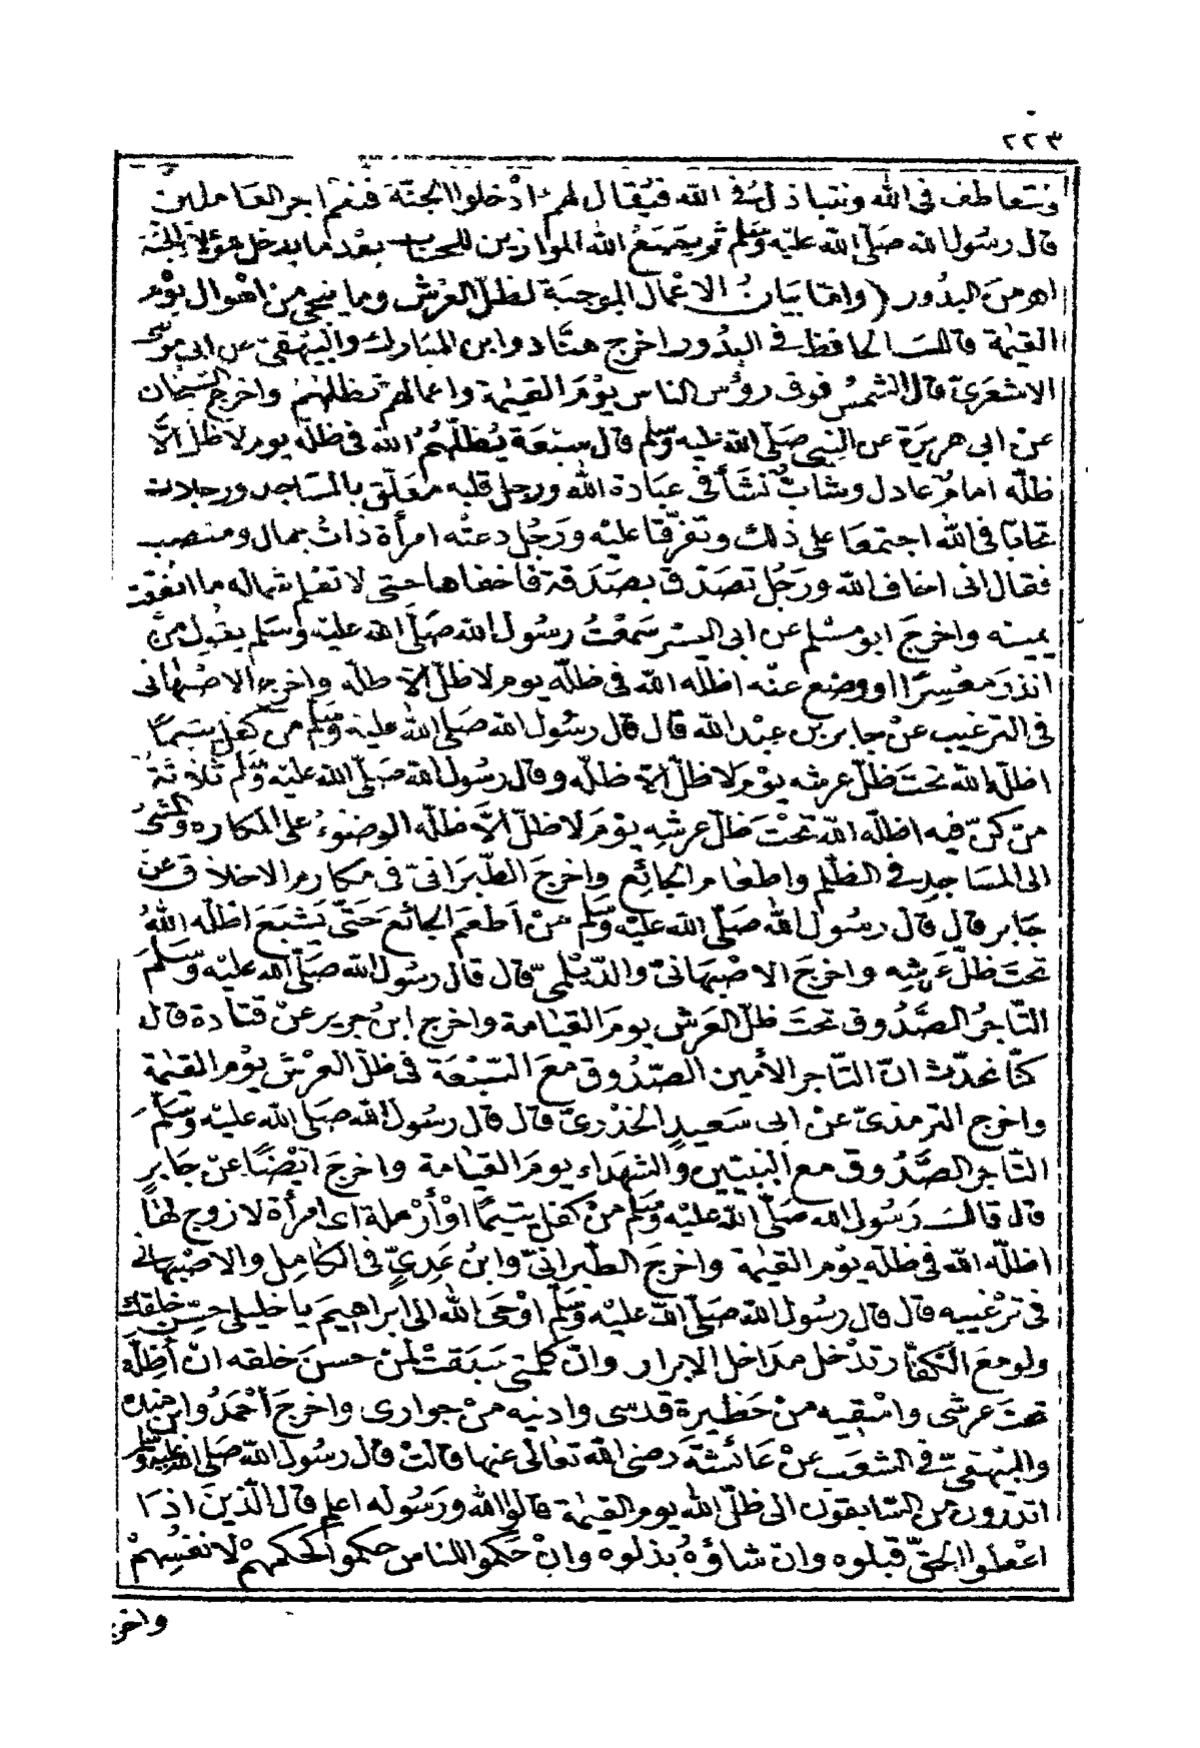 ٢٢٣
ونتعاطف فى الله ونتباذل فى الله فيقال لهم ادْخلوا الجنّة فنعم اجر العاملين
قال رسُول الله صَلّى الله عليْه وَسلم ثم يَضَعُ الله الموازين للحساب بعْد ما يدخل هؤلاء الجنّة
اهـ من البدُور (وامّا بَيَانُ الاعْمال الموجبَة لظلّ العَرْش وما ينجى من اهْوال يوْم
القيٰمة قال الحافظ فى البدُور اخرج هنّاد وابن المبَارك والبيْهقىّ عن ابى موسى
الاشعَرىّ قال الشمسُ فوق رؤُس الناس يوْمَ القيٰمة واعمالهم تظلهُمْ واخرج الشيخان
عَنْ ابى هريرَة عن النبِى صَلّى الله عليه وَسلم قال سبْعَة يُظلّهمُ الله فى ظلّه يوم لا ظلّ الاّ
ظلّه امامٌ عادل وشابٌّ نشَأ فى عبَادة الله ورجل قلبه معَلّق بالمسَاجد ورجلان
تحَابّا فى الله اجتمعَا على ذلك وتفرّقا عليْه ورَجُل دعتْه امرأة ذاتُ جمال ومنصب
فقال انى اخاف الله ورَجُل تصَدّق بصَدَقة فاخفاها حتى لا تعْلم شماله ما انفقت
يمينه واخرجَ ابو مسْلم عن ابى اليسَر سَمعْتُ رسُول الله صَلّى الله عليْه وَسَلم يقول منْ
انذر معْسِرًا او وضع عنْه اظلّه الله فى ظلّه يوم لا ظلّ الاّ ظلّه واخرج الاصْبهانى
فى الترغيب عنْ جابر بن عبْد الله قال قال رسُول الله صَلى الله عليه وَسلم منْ كفل يتيمًا
اظلّه الله تحتَ ظلّ عرشه يوْمَ لا ظلّ الاّ ظلّه وقال رسُول الله صَلّى الله عليْه وَسلم ثلاثةٌ
منْ كنّ فيه اظلّه الله تحْتَ ظلّ عرشِه يوْمَ لا ظلّ الاَّ ظلّه الوضوءُ على المكاره والمشْىُ
الى المسَاجِد فى الظلَم واطعَام الجائِع واخرجَ الطّبرَانىّ فى مكارم الاخلاق عَنْ
جَابر قال قال رسُول الله صَلّى الله عليْه وَسلم منْ اَطعَمَ الجائعَ حَتّى يَشبَعَ اظلّه اللهُ
تحتَ ظلّ عَرشِه واخرجَ الاصْبَهانىّ والدّيْلمىّ قال قال رسُول الله صَلّى الله عليْه وَسَلمَ
التّاجرُ الصَّدُوق تحتَ ظلّ العَرش يومَ القيَامة واخرج ابنُ جرير عنْ قتَادة قال
كنّا نحدّث انّ التّاجر الأمين الصّدُوق معَ السّبْعَة فى ظلّ العرْش يوْم القيٰمة
واخرج الترمذىّ عَنْ ابى سَعيدٍ الخدْرىّ قال قال رسُول الله صَلى الله عليْه وَسَلمَ
التّاجر الصَّدُوق مع النبيّين والشهَداء يومَ القيَامة واخرجَ ايْضًا عن جَابرٍ
قال قال رَسُول الله صَلّى الله عليْه وَسلم منْ كفل يتيمًا اوْ أرْملة اى امرأة لا زوج لها
اظلّه الله فى ظلّه يوْم القيٰمة واخرجَ الطّبرانىّ وابنُ عَدىّ فى الكامِل والاصْبهانى
فى ترْغيبه قال قال رسُول الله صَلّى الله عليْه وَسلم اوْحَى الله الى ابراهيمَ يا خليلى حسِّنْ خلقك
ولو معَ الكفّار تدْخل مدَاخل الابرار وانّ كلمتى سَبَقتْ لمنْ حسنَ خلقه انْ أظِلّه
تحتَ عرْشى واسْقيه منْ حَظيرة قدسى وادنيه منْ جوارى واخرجَ أحْمَدُ وابن
والبيْهقىّ فى الشعَب عنْ عَائشَة رَضىَ الله تعَالى عنها قالتْ قال رسُول الله صَلى الله عليه وَسلم
اتدرون من السّابقون الى ظلّ الله يوم القيٰمة قالوا الله ورَسُوله اعلم قال الّذينَ اذا
اعْطوا الحقّ قبلوه وان شاؤهُ بذلوه وانْ حَكموا للناس حكموا كحكمهمْ لانفسِهمْ
واخرج